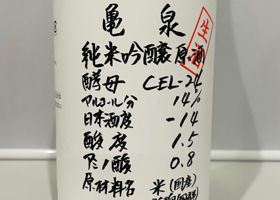 亀泉
純米吟醸原酒
生酒
酵母 CEL-24
アルコール分 14%
日本酒度 -14
酸度 1.5
アミノ酸 0.8
原材料名 米(国産)